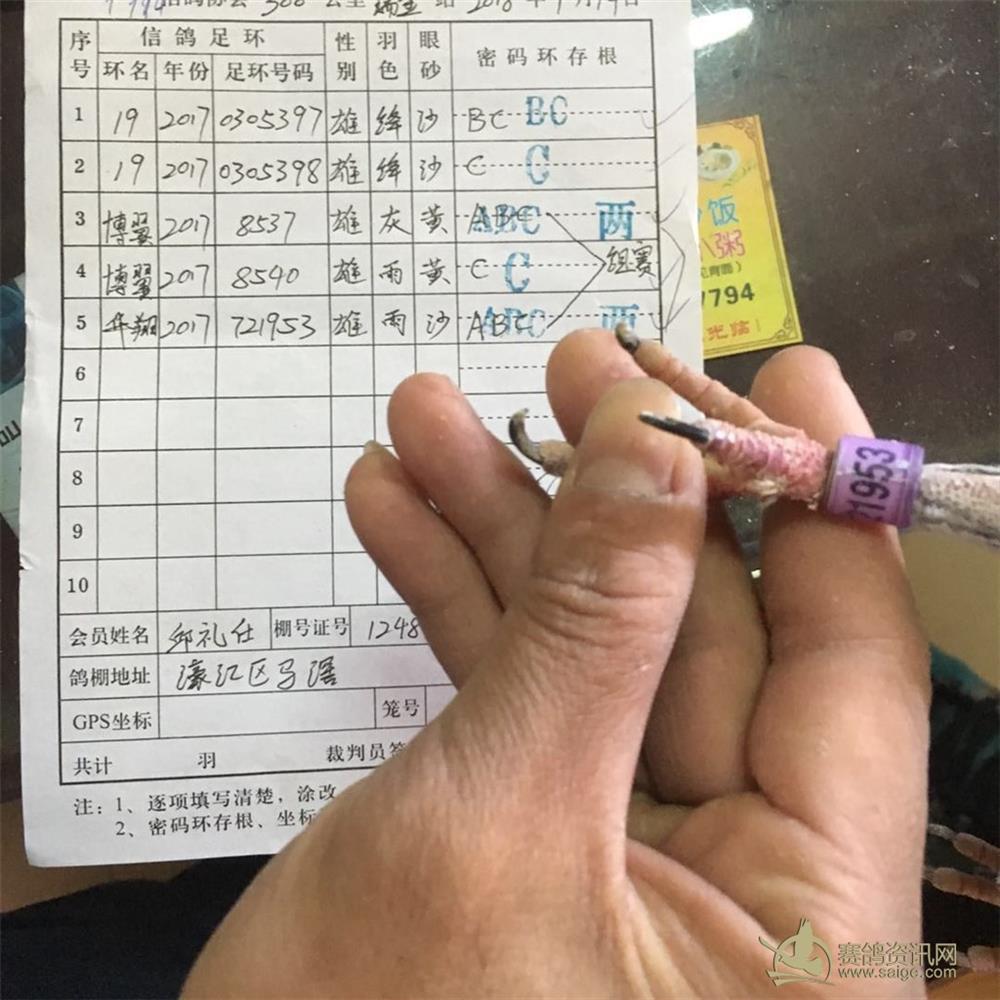 信鸽协会 300 公里 站 2018 年
序号 信鸽足环 性别 羽色 眼砂 密码环存根
环名 年份 足环号码
1 19 2017 0305397 雄 绛 沙 BC BC
2 19 2017 0305398 雄 绛 沙 C C
3 博翼 2017 8537 雄 灰 黄 ABC ABC 两
4 博翼 2017 8540 雄 雨 黄 C C 组赛
5 华翔 2017 721953 雄 雨 沙 ABC ABC 两
6
7
8
9
10
会员姓名 邱礼仕 棚号证号 1248
鸽棚地址 濠江区马滘
GPS坐标 笼号
共计 羽 裁判员签
注：1、逐项填写清楚，涂改
2、密码环存根、坐标
饭
八粥
7794
光临！
1953
赛鸽资讯网
www.saige.com